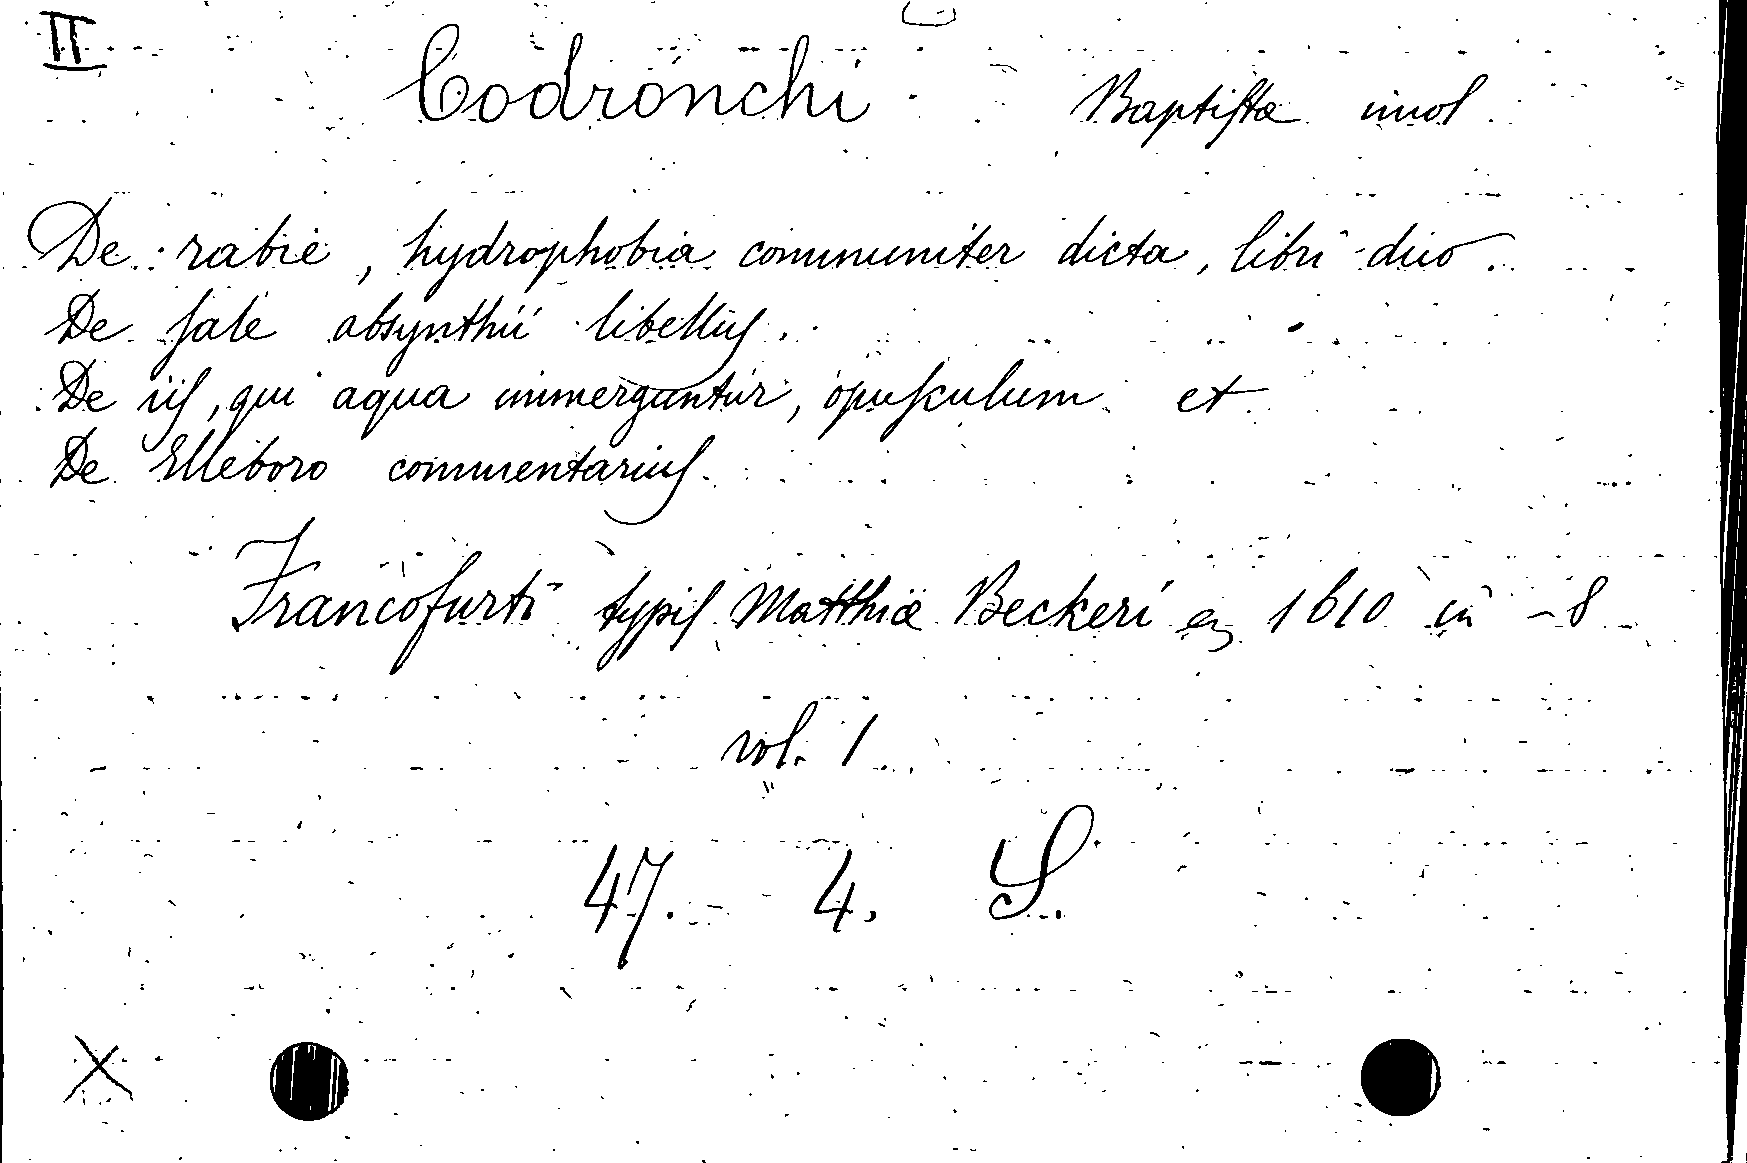 II
Codronchi Baptista imol
De rabie, hydrophobia communiter dicta, libri duo.
De sale absynthii libellus.
De iis, qui aqua immerguntur, opusculum et
De Elleboro commentarius.
Francofurti typis Matthiæ Beckeri 1610 in -8
vol. 1
47. 4. S.
X